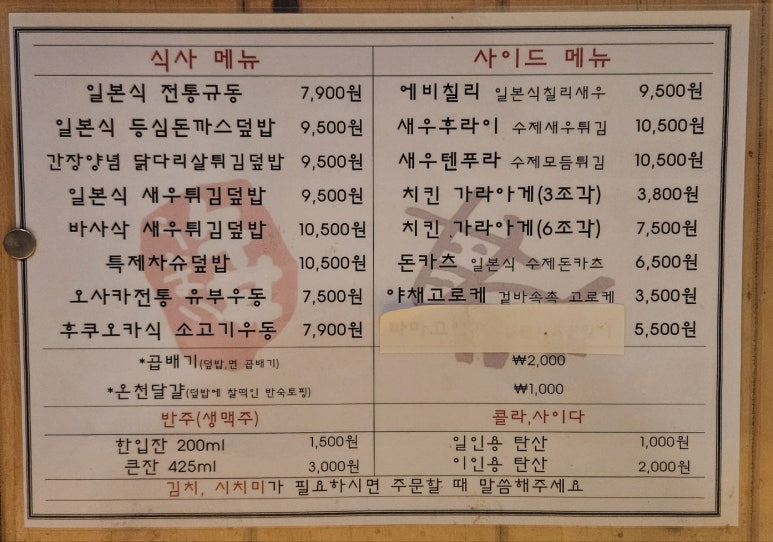 식사 메뉴
일본식 전통규동 7,900원
일본식 등심돈까스덮밥 9,500원
간장양념 닭다리살튀김덮밥 9,500원
일본식 새우튀김덮밥 9,500원
바사삭 새우튀김덮밥 10,500원
특제차슈덮밥 10,500원
오사카전통 유부우동 7,500원
후쿠오카식 소고기우동 7,900원
사이드 메뉴
에비칠리 일본식칠리새우 9,500원
새우후라이 수제새우튀김 10,500원
새우텐푸라 수제모듬튀김 10,500원
치킨 가라아게(3조각) 3,800원
치킨 가라아게(6조각) 7,500원
돈카츠 일본식 수제돈카츠 6,500원
야채고로케 겉바속촉 고로케 3,500원
5,500원
*곱배기(덮밥,면 곱배기) ₩2,000
*온천달걀(덮밥에 찰떡인 반숙토핑) ₩1,000
반주(생맥주)
한입잔 200ml 1,500원
큰잔 425ml 3,000원
콜라,사이다
일인용 탄산 1,000원
이인용 탄산 2,000원
김치, 시치미가 필요하시면 주문할 때 말씀해주세요